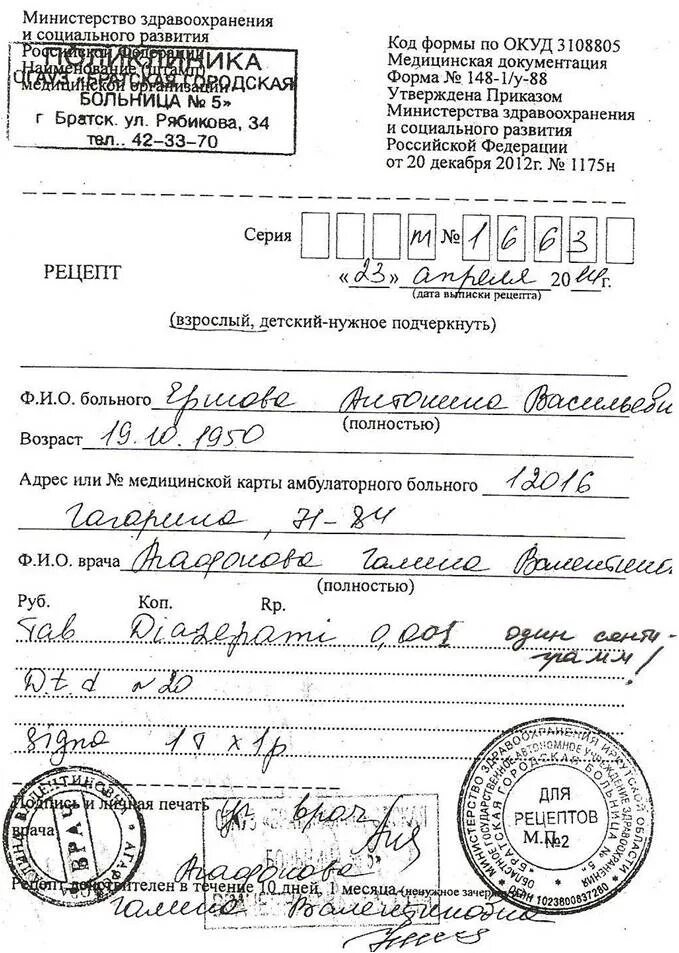 Министерство здравоохранения
и социального развития
Российской Федерации
Наименование (штамп)
медицинской организации
ПОЛИКЛИНИКА
ОГАУЗ «БРАТСКАЯ ГОРОДСКАЯ
БОЛЬНИЦА № 5»
г Братск. ул. Рябикова, 34
тел.. 42-33-70
Код формы по ОКУД 3108805
Медицинская документация
Форма № 148-1/у-88
Утверждена Приказом
Министерства здравоохранения
и социального развития
Российской Федерации
от 20 декабря 2012г. № 1175н
Серия т № 1 6 6 3
РЕЦЕПТ «23» апреля 2014г.
(дата выписки рецепта)
(взрослый, детский-нужное подчеркнуть)
Ф.И.О. больного Ершова Антонина Васильевн
(полностью)
Возраст 19.10.1950
Адрес или № медицинской карты амбулаторного больного 12016
Гагарина, 71-84
Ф.И.О. врача Агафонова Галина Валентино
(полностью)
Руб. Коп. Rp.
Tab Diazepami 0,005 один санти-
грамм!
D.t.d N 20
Signa 1т x 1р
Подпись и личная печать
врача
врач
Агафонова
Рецепт действителен в течение 10 дней, 1 месяца (ненужное зачеркнуть)
Галина Валентиновна
ВРАЧ
МИНИСТЕРСТВО ЗДРАВООХРАНЕНИЯ ИРКУТСКОЙ ОБЛАСТИ
ОБЛАСТНОЕ ГОСУДАРСТВЕННОЕ АВТОНОМНОЕ УЧРЕЖДЕНИЕ ЗДРАВООХРАНЕНИЯ
"БРАТСКАЯ ГОРОДСКАЯ БОЛЬНИЦА № 5"
ДЛЯ
РЕЦЕПТОВ
М.П.
№2
ОГРН 1023800837260